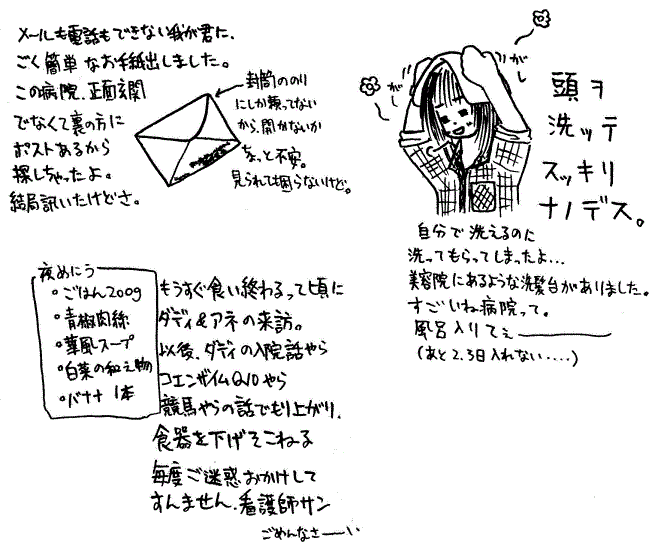 メールも電話もできない我が君に、
ごく簡単なお手紙出しました。
この病院、正面玄関
でなくて裏の方に
ポストあるから
探しちゃったよ。
結局訊いたけどさ。
封筒ののり
にしか頼ってない
から、開かないか
ちょっと不安。
見られても困らないけど。
がし
がし
頭ヲ
洗ッテ
スッキリ
ナノデス。
自分で洗えるのに
洗ってもらってしまったよ…
美容院にあるような洗髪台がありました。
すごいね病院って。
風呂入りてぇ――――
(あと2.3日入れない‥‥)
夜めにう
・ごはん200g
・青椒肉絲
・華風スープ
・白菜の和え物
・バナナ 1本
もうすぐ食い終わるって頃に
ダディ&アネの来訪。
以後、ダディの入院話やら
コエンザイムQ10やら
競馬やらの話でもり上がり、
食器を下げそこねる
毎度ご迷惑おかけして
すんません、看護師サン
ごめんなさーい